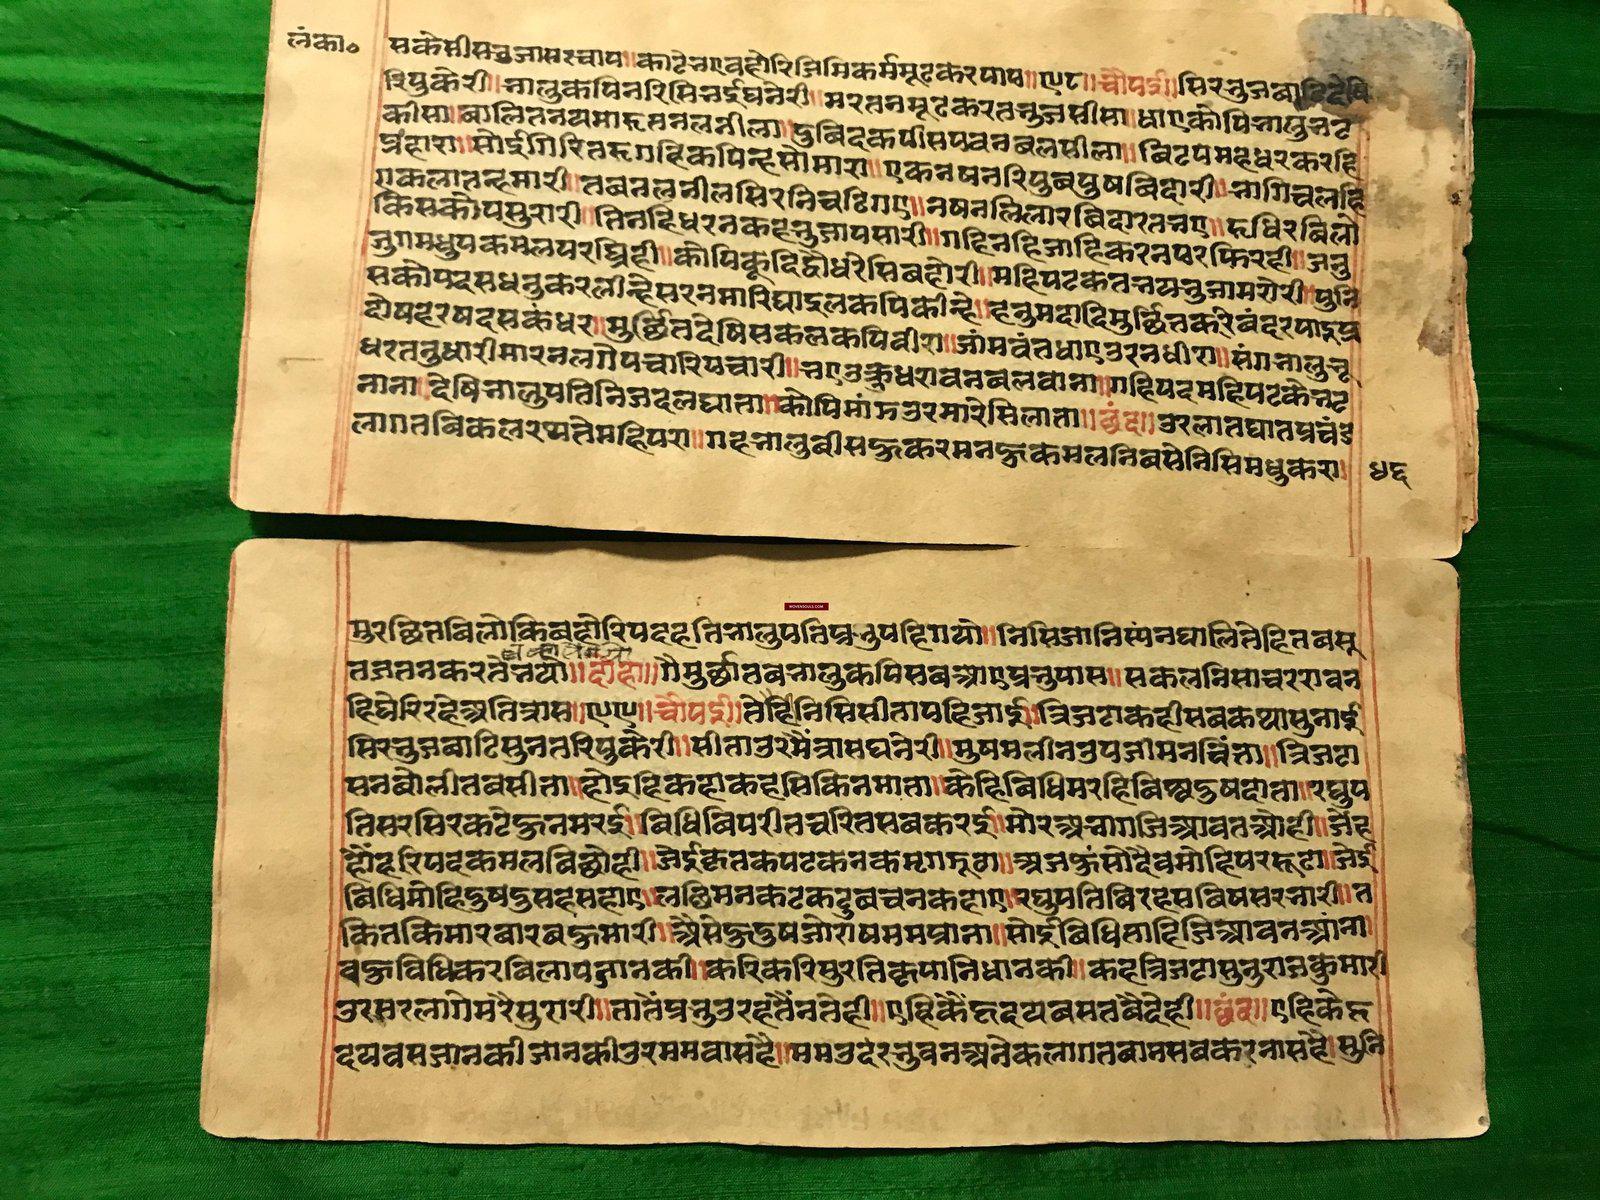 लंका॰
सकेसीसभुजासरचाप॥काटेभएबहोरिजिमिकर्ममूढकरपाप॥९८॥चौपई॥सिरभुजबाढिदेषि
रिपुकेरी॥भालुकपिनरिसिभईघनेरी॥मरतनमूढकरतभुजसीसा॥धाएकोपिभालुभट
कीसा॥बालितनयमारुतनलनीला॥दुबिदकपीसपवनबलसीला॥बिटपमहीधरकरहि
प्रंहारा॥सोईगिरितरुगहिकपिन्हसोमारा॥एकनषनरिपुबपुषबिदारी॥भागिचलहि
एकलातन्हमारी॥तबनलनीलसिरनिचढिगए॥नषनलिलारबिदारतभए॥रुधिरबिलो
किसकोपसुरारी॥तिनहिधरनकहभुजापसारी॥गहिनहिजाहिकरनपरफिरही॥जनु
जुगमधुपकमलपर॥कोपिकूदिद्वौधरेसिबहोरी॥महिपटकतभुजामरोरी॥पुनि
सकोपदसधनुकरलीन्हेसरनमारिघाइलकपिकीन्हे॥हनुमदादिमुर्छितकरिबंदरपाइप्र
दोषहरषदसकंधर॥मुर्छितदेषिसकलकपिबीरा॥जांमवंतधाएउरनधीरा॥संगभालुभू
धरतनुधारीमारनलगेपचारिपचारी॥भएउक्रुधरावनबलवाना॥गहिपदमहिपटकैभट
नाना॥देषिभालुपतिनिजदलघाता॥कोपिमांझउरमारेसिलाता॥छंद॥उरलातघातप्रचंड
लागतबिकलरथतेमहिपरा॥गहभालुबीसहुकरमनहुकमलनिबसेनिसिमधुकरा
५८
मुरछितबिलोकिबहोरिपदहतिभालुपतिप्रभुपहिगयो॥निसिजानिस्यंनघालितेहितबसू
तजतनकरतेभयो॥दोहा॥गैमुर्छातबभालुकपिसबआएप्रभुपास॥सकलनिसाचररावन
हिघेरिरहेअतित्रास॥९९॥चौपई॥तेहिनिसिसीतापहिजाई॥त्रिजटाकहीसबकथासुनाई
सिरभुजबाढिसुनतरिपुकेरी॥सीताउरभैत्रासघनेरी॥मुषमलीनउपजीमनचिंता॥त्रिजटा
सनबोलीतबसीता॥होइहिकहाकहसिकिनमाता॥केहिबिधिमरहिबिस्वदुषदाता॥रघुप
तिसरसिरकटेहुनमरई॥बिधिबिपरीतचरितसबकरई॥मोरअभागजिआवतओही॥जेह
हौंहरिपदकमलबिछोही॥जेईकृतकपटकनकमृगझूठा॥अजहुंसोदैवमोहिपररूठा॥जेई
बिधिमोहिदुषदुसहसहाए॥लछिमनकटकटुबचनकहाए॥रघुपतिबिरहसबिषसरभारी॥त
कितकिमारबारबहुमारी॥अैसेहुदुषजोराषममप्राना॥सोईबिधिताहिजिआवनआंना
बहुविधिकरविलापजानकी॥करिकरिसुरतिकृपानिधानकी॥कहत्रिजटासुनुराजकुमारी
उरसरलागेमरैसुरारी॥तातेंप्रभुउरहतैनतेही॥एहिकेहृदयबसतबैदेही॥छंद॥एहिकेहृ
दयबसजानकीजानकीउरममवासहै॥ममउदरभुवनअनेकलागतबानसबकरनासहै॥सुनि